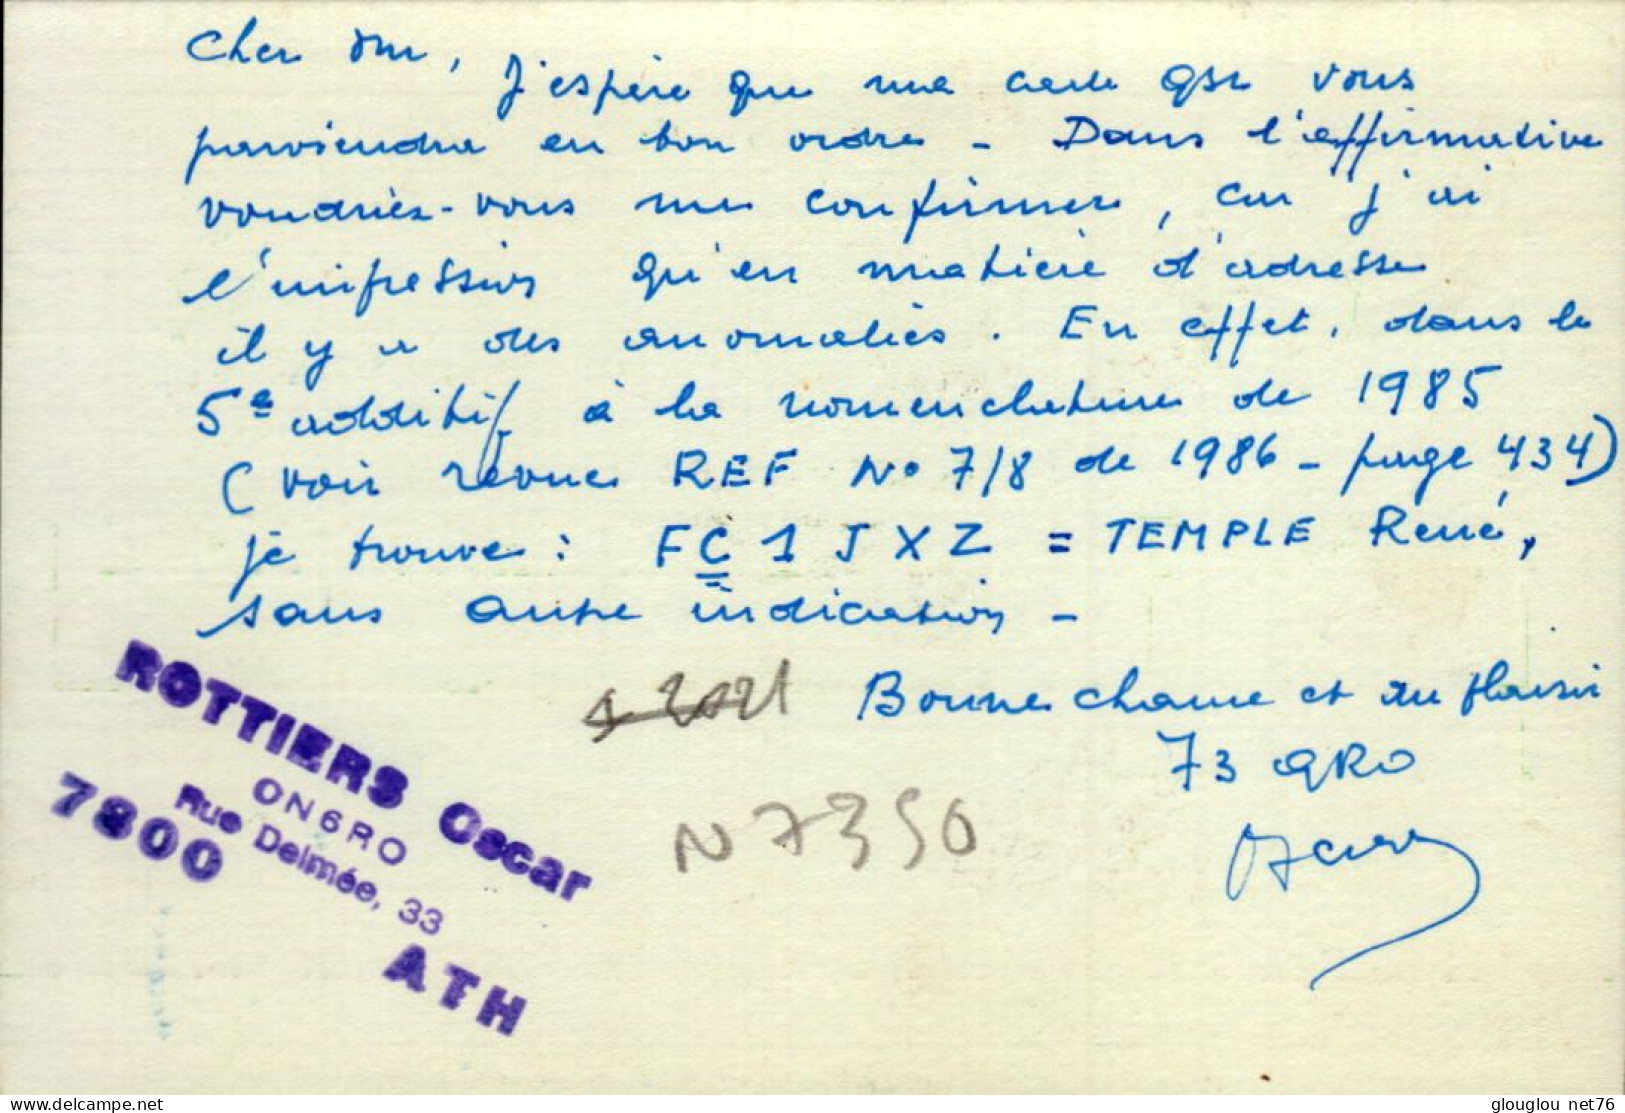 Cher OM,
J'espère que ma carte QSL vous
parviendra en bon ordre - Dans l'affirmative
voudriez-vous me confirmer, car j'ai
l'impression qu'en matière d'adresse
il y a des anomalies. En effet, dans le
5e additif à la nomenclature de 1985
(voir revue REF No 7/8 de 1986 - page 434)
je trouve : FC1JXZ = TEMPLE René,
sans autre indication -
Bonne chance et au plaisir
73 QRO
Oscar
N7350
ROTTIERS Oscar
ON6RO
Rue Delmée, 33
7800 ATH
www.delcampe.net
glouglou_net76